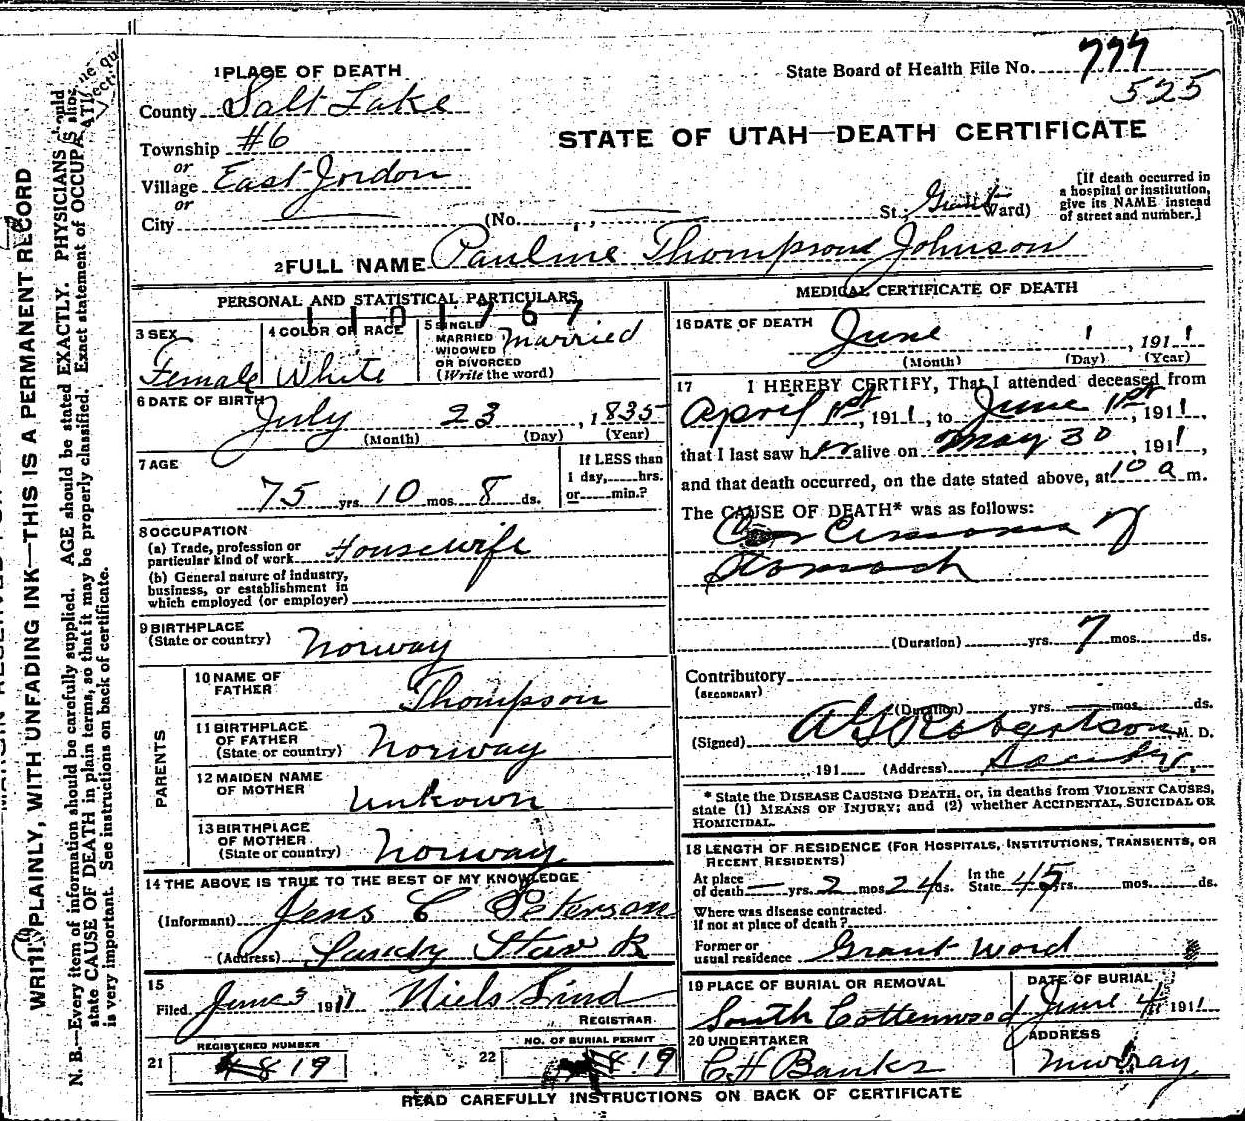 1 PLACE OF DEATH
State Board of Health File No. 777
525
County Salt Lake
STATE OF UTAH—DEATH CERTIFICATE
Township #6
or
Village East Jordon
or
City
(No.
St.; Grant Ward)
[If death occurred in
a hospital or institution,
give its NAME instead
of street and number.]
2 FULL NAME Pauline Thompson Johnson
PERSONAL AND STATISTICAL PARTICULARS
1101767
3 SEX
Female
4 COLOR OR RACE
White
5 SINGLE
MARRIED
WIDOWED
OR DIVORCED
(Write the word)
Married
6 DATE OF BIRTH
July 23, 1835
(Month) (Day) (Year)
7 AGE
75 yrs. 10 mos. 8 ds.
If LESS than
1 day, hrs.
or min.?
8 OCCUPATION
(a) Trade, profession or
particular kind of work Housewife
(b) General nature of industry,
business, or establishment in
which employed (or employer)
9 BIRTHPLACE
(State or country) Norway
PARENTS
10 NAME OF
FATHER Thompson
11 BIRTHPLACE
OF FATHER
(State or country) Norway
12 MAIDEN NAME
OF MOTHER Unkown
13 BIRTHPLACE
OF MOTHER
(State or country) Norway
14 THE ABOVE IS TRUE TO THE BEST OF MY KNOWLEDGE
(Informant) Jens C Peterson
(Address) Sandy Star R
15
Filed June 3 1911 Niels Lind
REGISTRAR.
21
REGISTERED NUMBER
819
22
NO. OF BURIAL PERMIT
819
MEDICAL CERTIFICATE OF DEATH
16 DATE OF DEATH
June 1, 1911
(Month) (Day) (Year)
17 I HEREBY CERTIFY, That I attended deceased from
April 1st, 1911, to June 1st, 1911,
that I last saw her alive on May 30, 1911,
and that death occurred, on the date stated above, at 10 a m.
The CAUSE OF DEATH* was as follows:
Carcinoma of
Stomach
(Duration) yrs. 7 mos. ds.
Contributory
(SECONDARY)
(Duration) yrs. mos. ds.
(Signed) Robertson M. D.
, 191 (Address)
* State the DISEASE CAUSING DEATH, or, in deaths from VIOLENT CAUSES,
state (1) MEANS OF INJURY; and (2) whether ACCIDENTAL, SUICIDAL OR
HOMICIDAL.
18 LENGTH OF RESIDENCE (FOR HOSPITALS, INSTITUTIONS, TRANSIENTS, OR
RECENT RESIDENTS)
At place
of death — yrs. 2 mos. 24 ds.
In the
State 45 yrs. mos. ds.
Where was disease contracted.
if not at place of death?
Former or
usual residence Grant Word
19 PLACE OF BURIAL OR REMOVAL
South Cottenwood
DATE OF BURIAL
June 4, 1911
20 UNDERTAKER
C H Banks
ADDRESS
Murray
READ CAREFULLY INSTRUCTIONS ON BACK OF CERTIFICATE
WRITE PLAINLY, WITH UNFADING INK—THIS IS A PERMANENT RECORD
N. B.—Every item of information should be carefully supplied. AGE should be stated EXACTLY. PHYSICIANS should
state CAUSE OF DEATH in plain terms, so that it may be properly classified. Exact statement of OCCUPATION
is very important. See instructions on back of certificate.